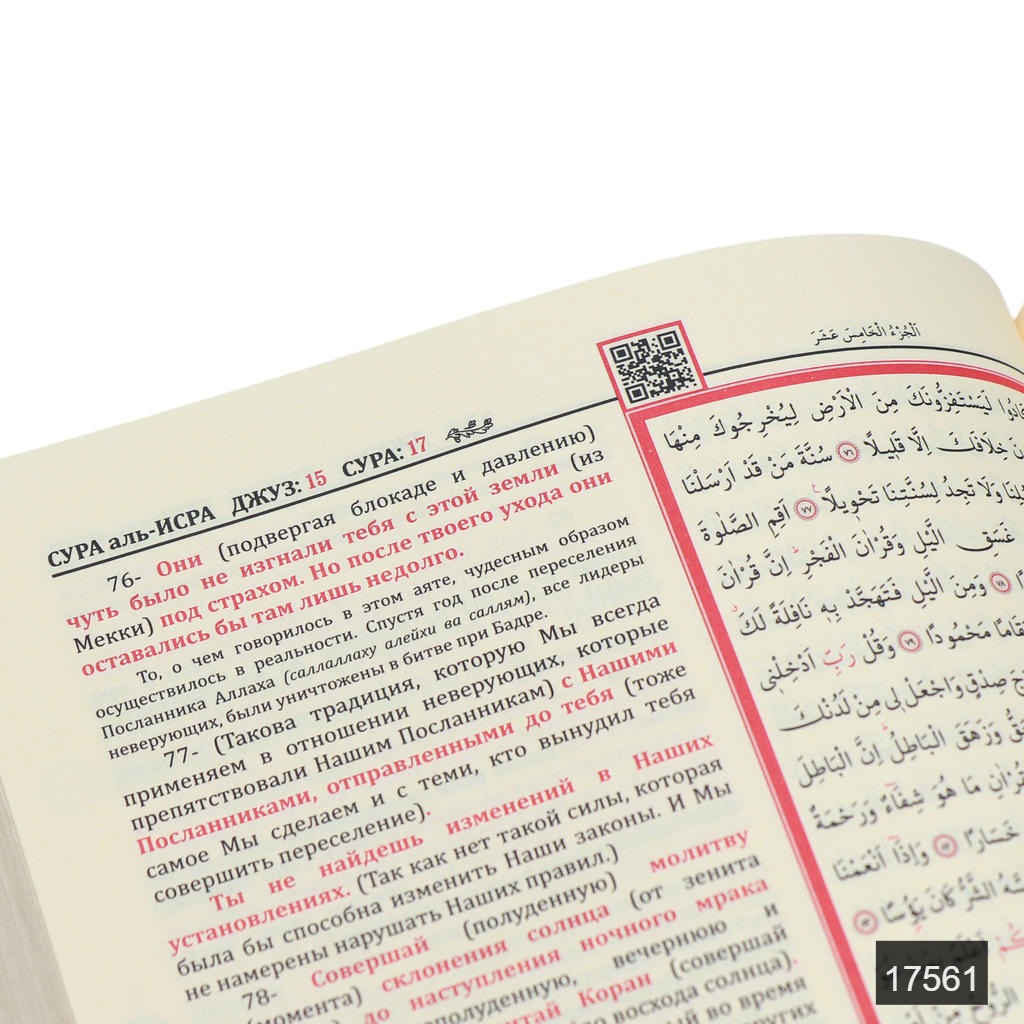 СУРА аль-ИСРА ДЖУЗ: 15 СУРА: 17
76- Они (подвергая блокаде и давлению)
чуть было не изгнали тебя с этой земли (из
Мекки) под страхом. Но после твоего ухода они
оставались бы там лишь недолго.
То, о чем говорилось в этом аяте, чудесным образом
осуществилось в реальности. Спустя год после переселения
Посланника Аллаха (саллаллаху алейхи ва саллям), все лидеры
неверующих, были уничтожены в битве при Бадре.
77- (Такова традиция, которую Мы всегда
применяем в отношении неверующих, которые
препятствовали Нашим Посланникам) с Нашими
Посланниками, отправленными до тебя (тоже
самое Мы сделаем и с теми, кто вынудил тебя
совершить переселение).
Ты не найдешь изменений в Наших
установлениях. (Так как нет такой силы, которая
была бы способна изменить Наши законы. И Мы
не намерены нарушать Наших правил.)
78- Совершай (полуденную) молитву
(момента) склонения солнца (от зенита
до наступления ночного мрака и
вечернюю
Коран (совершай
до восхода солнца).
во время
اَلْجُزْءُ الْخَامِسَ عَشَرَ
لَيَسْتَفِزُّونَكَ مِنَ الْاَرْضِ لِيُخْرِجُوكَ مِنْهَا
خِلَافَكَ اِلَّا قَلٖيلًا ٧٦ سُنَّةَ مَنْ قَدْ اَرْسَلْنَا
وَلَا تَجِدُ لِسُنَّتِنَا تَحْوٖيلًا ٧٧ اَقِمِ الصَّلٰوةَ
غَسَقِ الَّيْلِ وَقُرْاٰنَ الْفَجْرِ اِنَّ قُرْاٰنَ
٧٨ وَمِنَ الَّيْلِ فَتَهَجَّدْ بِهٖ نَافِلَةً لَكَ
مَقَامًا مَحْمُودًا ٧٩ وَقُلْ رَبِّ اَدْخِلْنٖى
صِدْقٍ وَاجْعَلْ لٖى مِنْ لَدُنْكَ
وَزَهَقَ الْبَاطِلُ اِنَّ الْبَاطِلَ
مَا هُوَ شِفَٓاءٌ وَرَحْمَةٌ
خَسَارًا ٨٢ وَاِذَٓا اَنْعَمْنَا
الشَّرُّ كَانَ يَؤُسًا ٨٣
17561